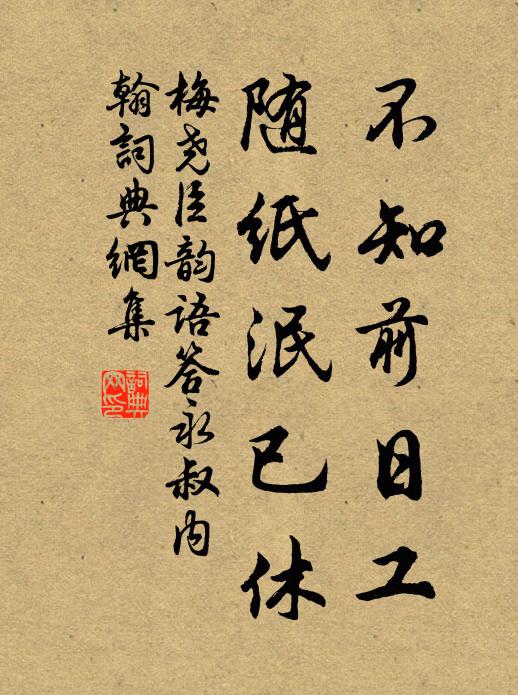 不知前日工
随纸泯已休
梅尧臣韵语答永叔内
翰詞典網集
詞典网印